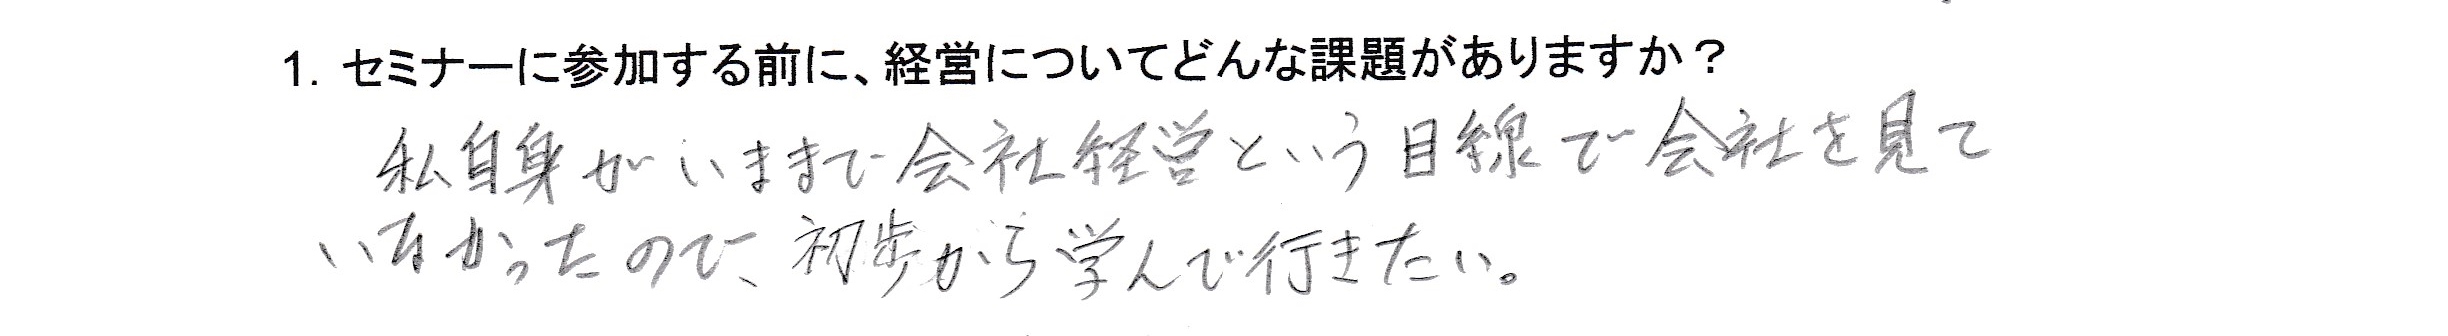 1. セミナーに参加する前に、経営についてどんな課題がありますか？
私自身がいままで会社経営という目線で会社を見て
いなかったので、初歩から学んで行きたい。